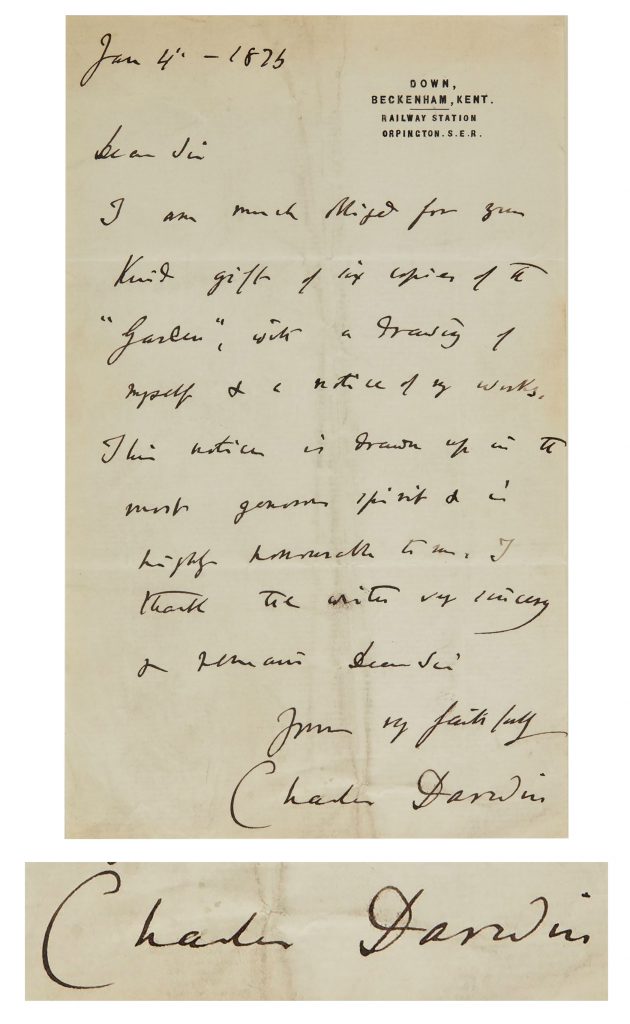 Jan 4th – 1876
DOWN,
BECKENHAM, KENT.
RAILWAY STATION
ORPINGTON. S.E.R.
Dear Sir
I am much obliged for your
kind gift of six copies of the
"Garden", with a drawing of
myself & a notice of my works.
This notice is drawn up in the
most generous spirit & is
highly honourable to me. I
thank the writer very sincerely
& remain Dear Sir
Yours very faithfully
Charles Darwin
Charles Darwin